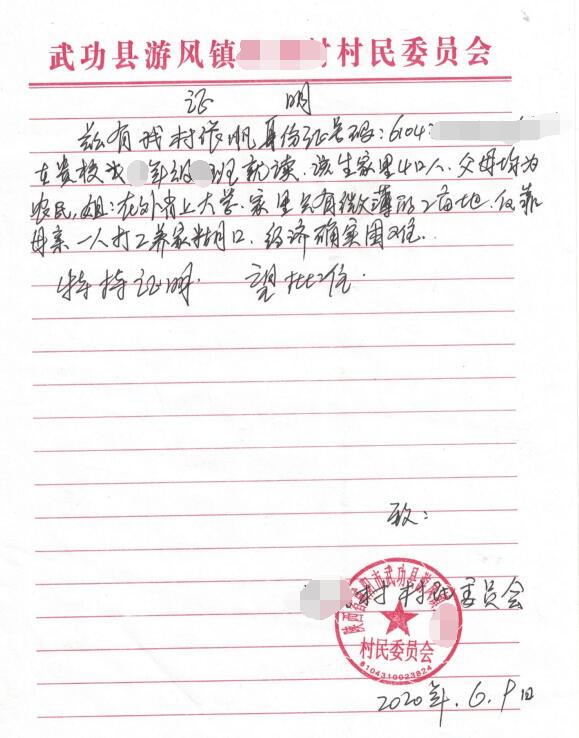 武功县游风镇 村村民委员会
证 明
兹有我村张帆身份证号码：6104
在贵校 年级 班就读。该生家里4口人，父母均为
农民，姐：在外省上大学。家里只有微薄的二亩地，仅靠
母亲一人打工养家糊口，经济确实困难。
特持证明 望批准
致：
村村民委员会
陕西省咸阳市武功县游凤镇
村民委员会
6104310023824
2020年.6.9日